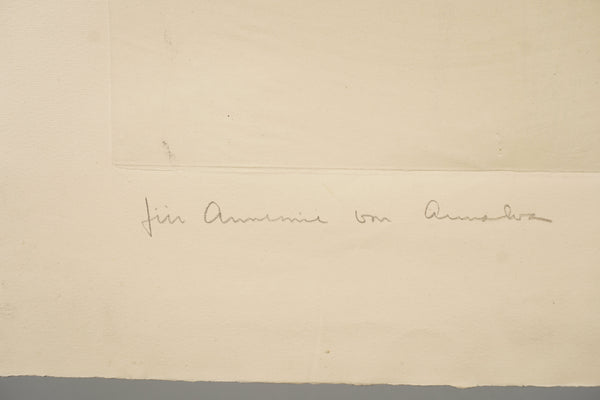 für Annemie von Annalva